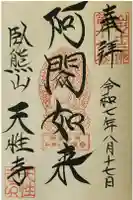 奉拝
令和七年八月十七日
阿閦如来
臥熊山
天性寺